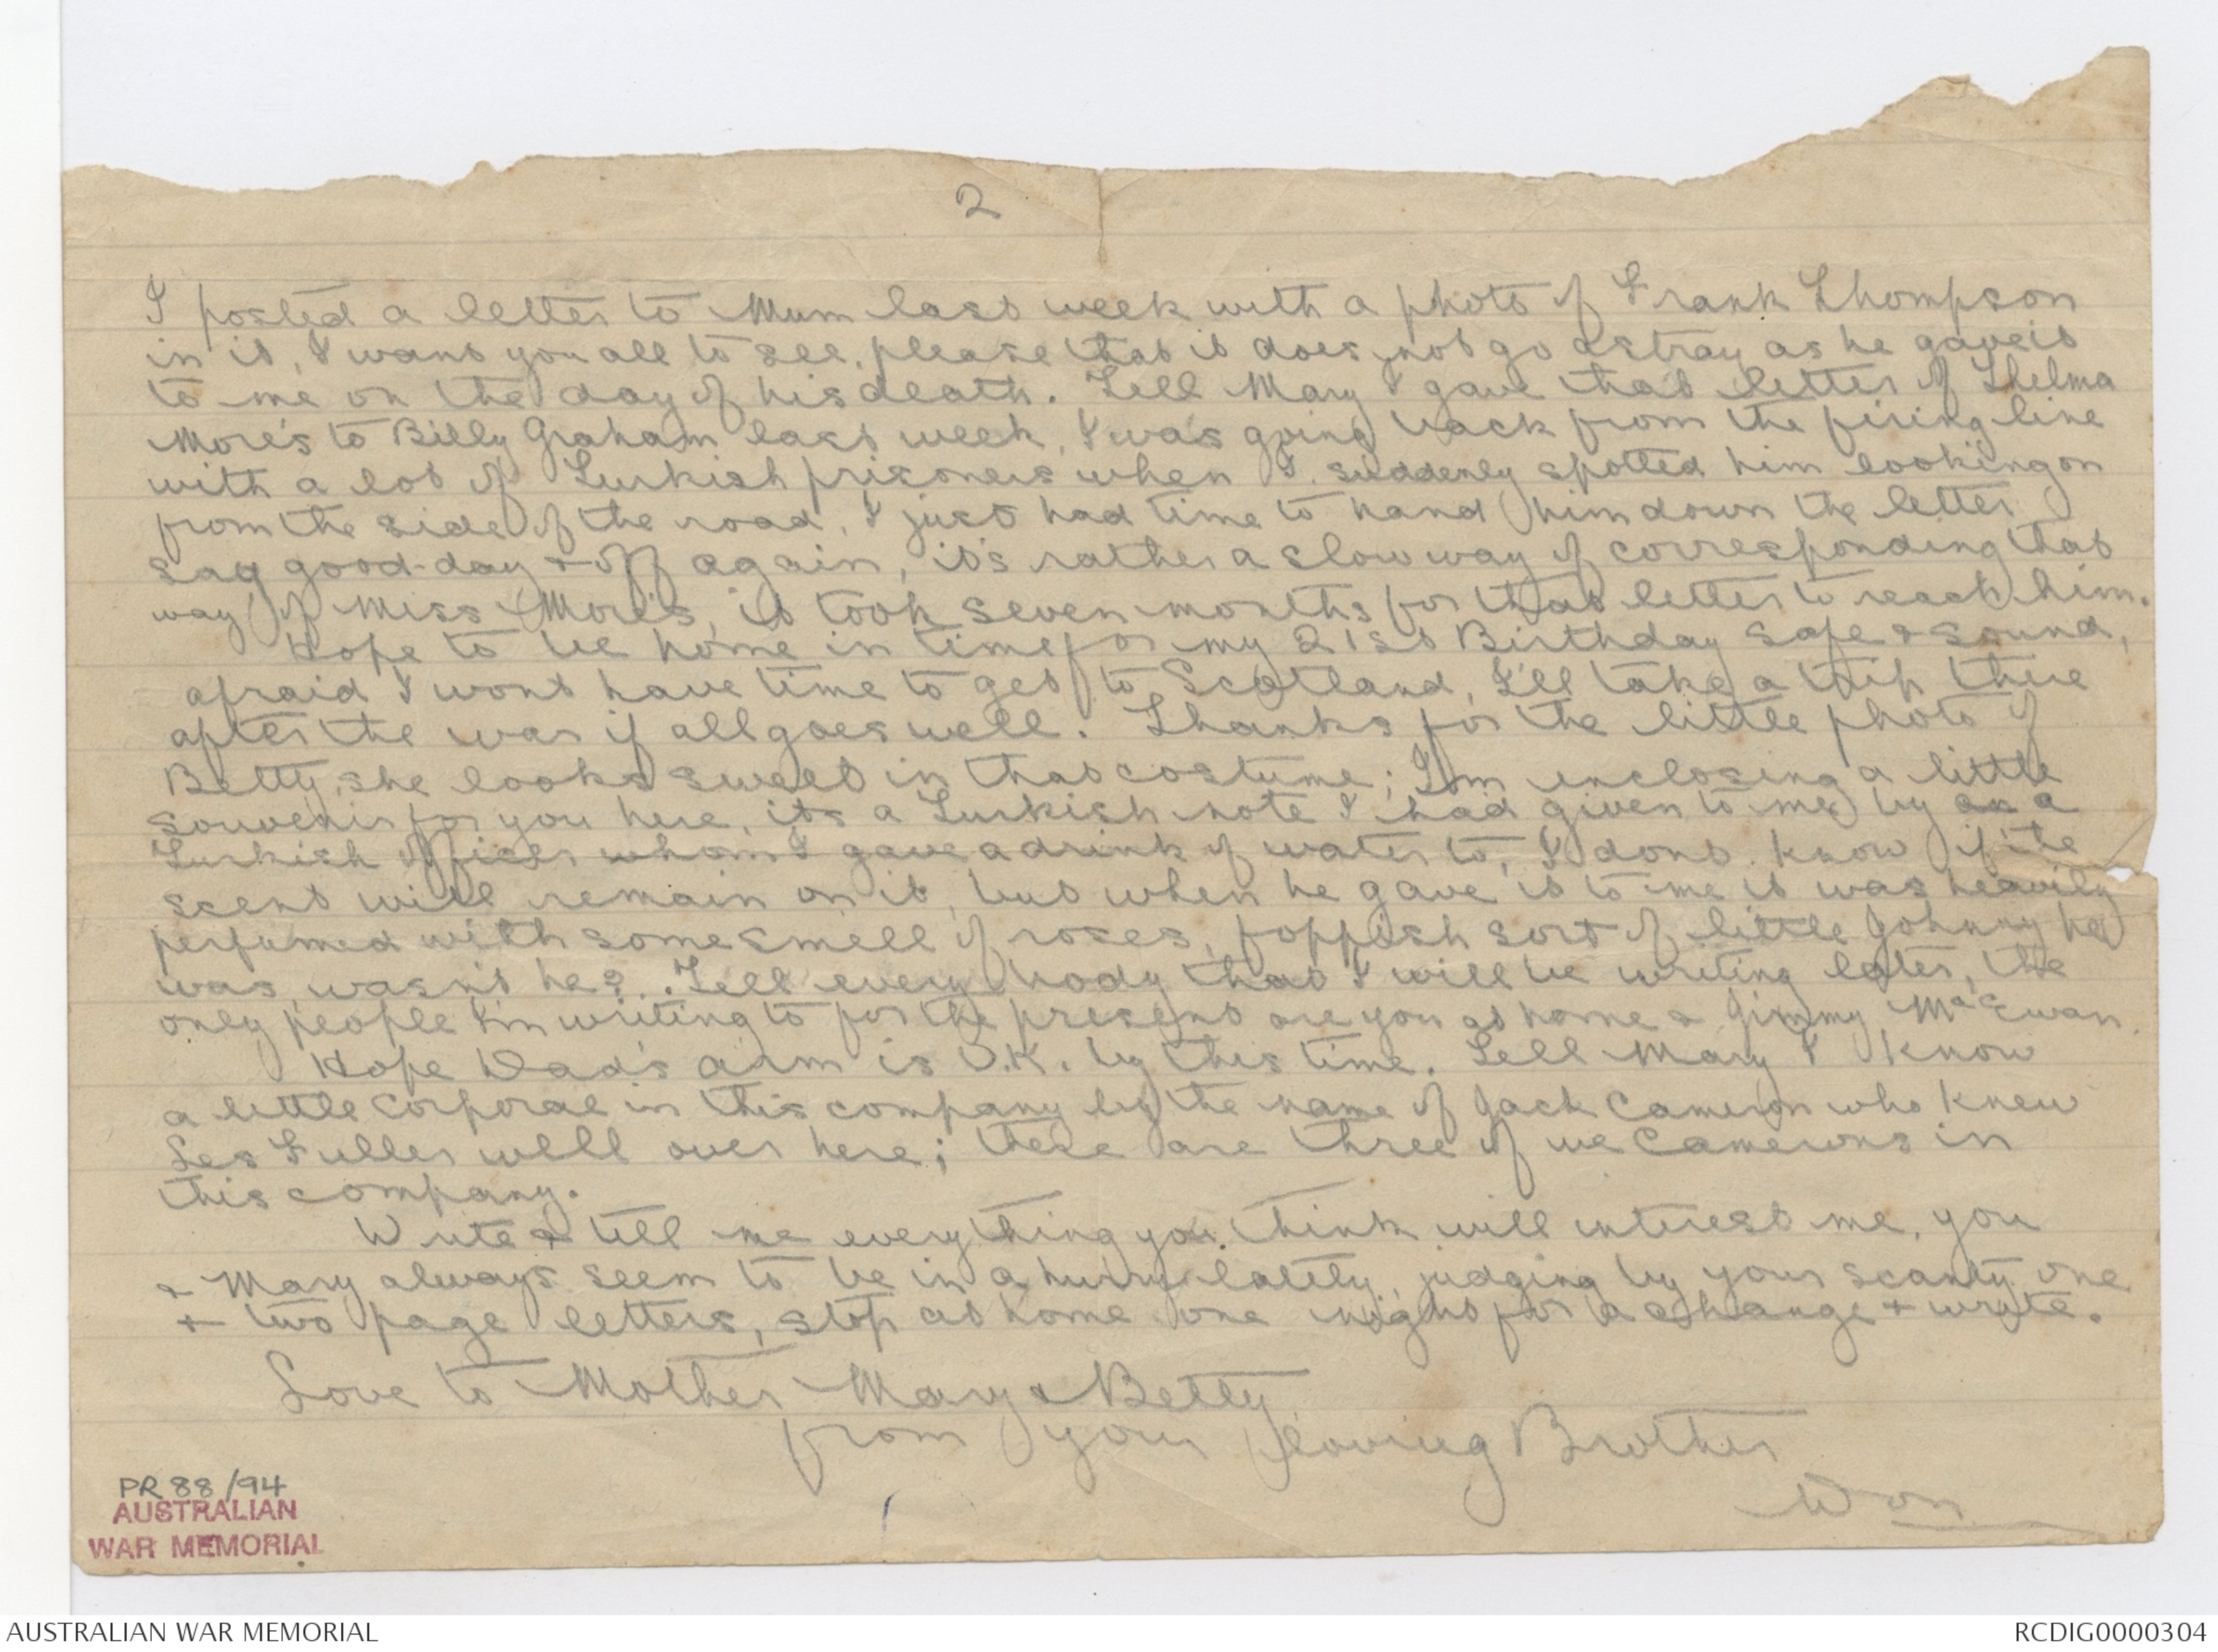 2
I posted a letter to Mum last week with a photo of Frank Thompson
in it, I want you all to see, please that it does not go astray as he gave it
to me on the day of his death. Tell Mary I gave that letter of Thelma
More's to Billy Graham last week, I was going back from the firing line
with a lot of Turkish prisoners when I suddenly spotted him looking on
from the side of the road, I just had time to hand him down the letter
say good-day & off again, it's rather a slow way of corresponding that
way of Miss More's, it took seven months for that letter to reach him.
Hope to be home in time for my 21st Birthday safe & sound,
afraid I wont have time to get to Scotland, I'll take a trip there
after the war if all goes well. Thanks for the little photo of
Betty, she looks sweet in that costume; I'm enclosing a little
souvenir for you here, its a Turkish note I had given to me by an a
Turkish officer whom I gave a drink of water to, I dont know if the
scent will remain on it, but when he gave it to me it was heavily
perfumed with some smell of roses, foppish sort of little Johnny he
was, wasn't he? Tell every body that I will be writing later, the
only people I'm writing to for the present are you at home & Jimmy MacEwan.
Hope Dad's arm is O.K. by this time. Tell Mary I know
a little corporal in this company by the name of Jack Cameron who knew
Les Fuller well over here; there are three of we Camerons in
this company.
Write & tell me everything you think will interest me, you
& Mary always seem to be in a hurry lately, judging by your scanty one
& two page letters, stop at home one night for a change & write.
Love to Mother Mary & Betty
from your loving Brother
PR 88/94
AUSTRALIAN
WAR MEMORIAL
AUSTRALIAN WAR MEMORIAL
RCDIG0000304